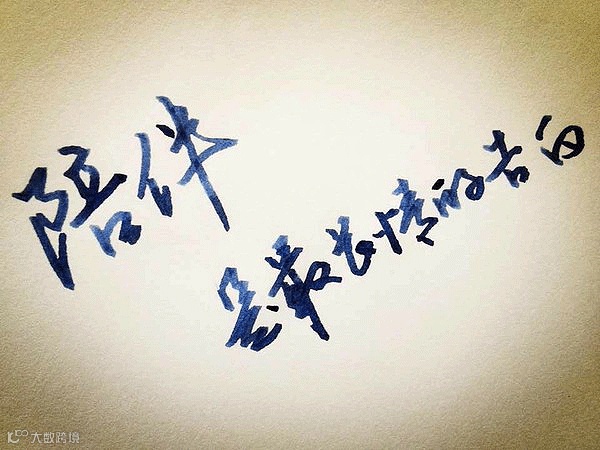 陪伴
是最长情的告白
大数跨境